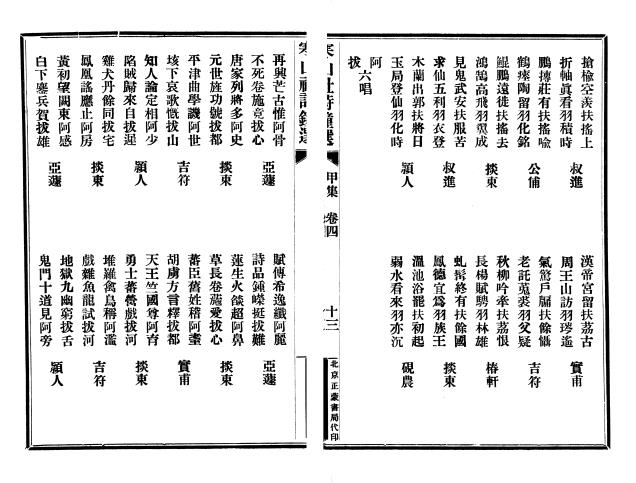 搶榆空羨扶搖上
折軸眞看羽積時 叔進
鵬摶莊有扶搖喻
鶴瘞陶留羽化銘 公俌
鯤鵬遠徙扶搖去
鴻鵠高飛羽翼成 掞東
見鬼武安扶服苦
求仙五利羽衣登 叔進
木蘭出郭扶將日
玉局登仙羽化時 穎人
阿 六唱
拔
漢帝宮留扶荔古
周王山訪羽琌遙 實甫
氣驚戶牖扶餘懾
老託菟裘羽父疑 吉符
秋柳吟牽扶荔恨
長楊賦騁羽林雄 椿軒
虬髯終有扶餘國
鳳德宜爲羽族王 掞東
溫池浴罷扶初起
弱水看來羽亦沉 硯農
寒山社詩鐘選 甲集 卷四 十三
北京正蒙書局代印
寒山社詩鐘選
再興芒古惟阿骨
不死卷施竟拔心 亞蘧
唐家列將多阿史
元世旌功號拔都 掞東
平津曲學譏阿世
垓下哀歌慨拔山 吉符
知人論定相阿少
陷賊歸來自拔遲 穎人
雞犬丹餘同拔宅
鳳凰謠應止阿房 掞東
黃初望闕東阿感
白下鏖兵賀拔雄 亞蘧
賦傳希逸纖阿麗
詩品鍾嶸挺拔難 亞蘧
蓮生火燄超阿鼻
草長卷葹愛拔心 掞東
蕃臣舊姓稽阿
胡虜方言釋拔都 實甫
天王竺國尊阿育
勇士蕃營戲拔河 掞東
堆羅禽鳥稱阿濫
戲雜魚龍試拔河 吉符
地獄九幽窮拔舌
鬼門十道見阿旁 穎人